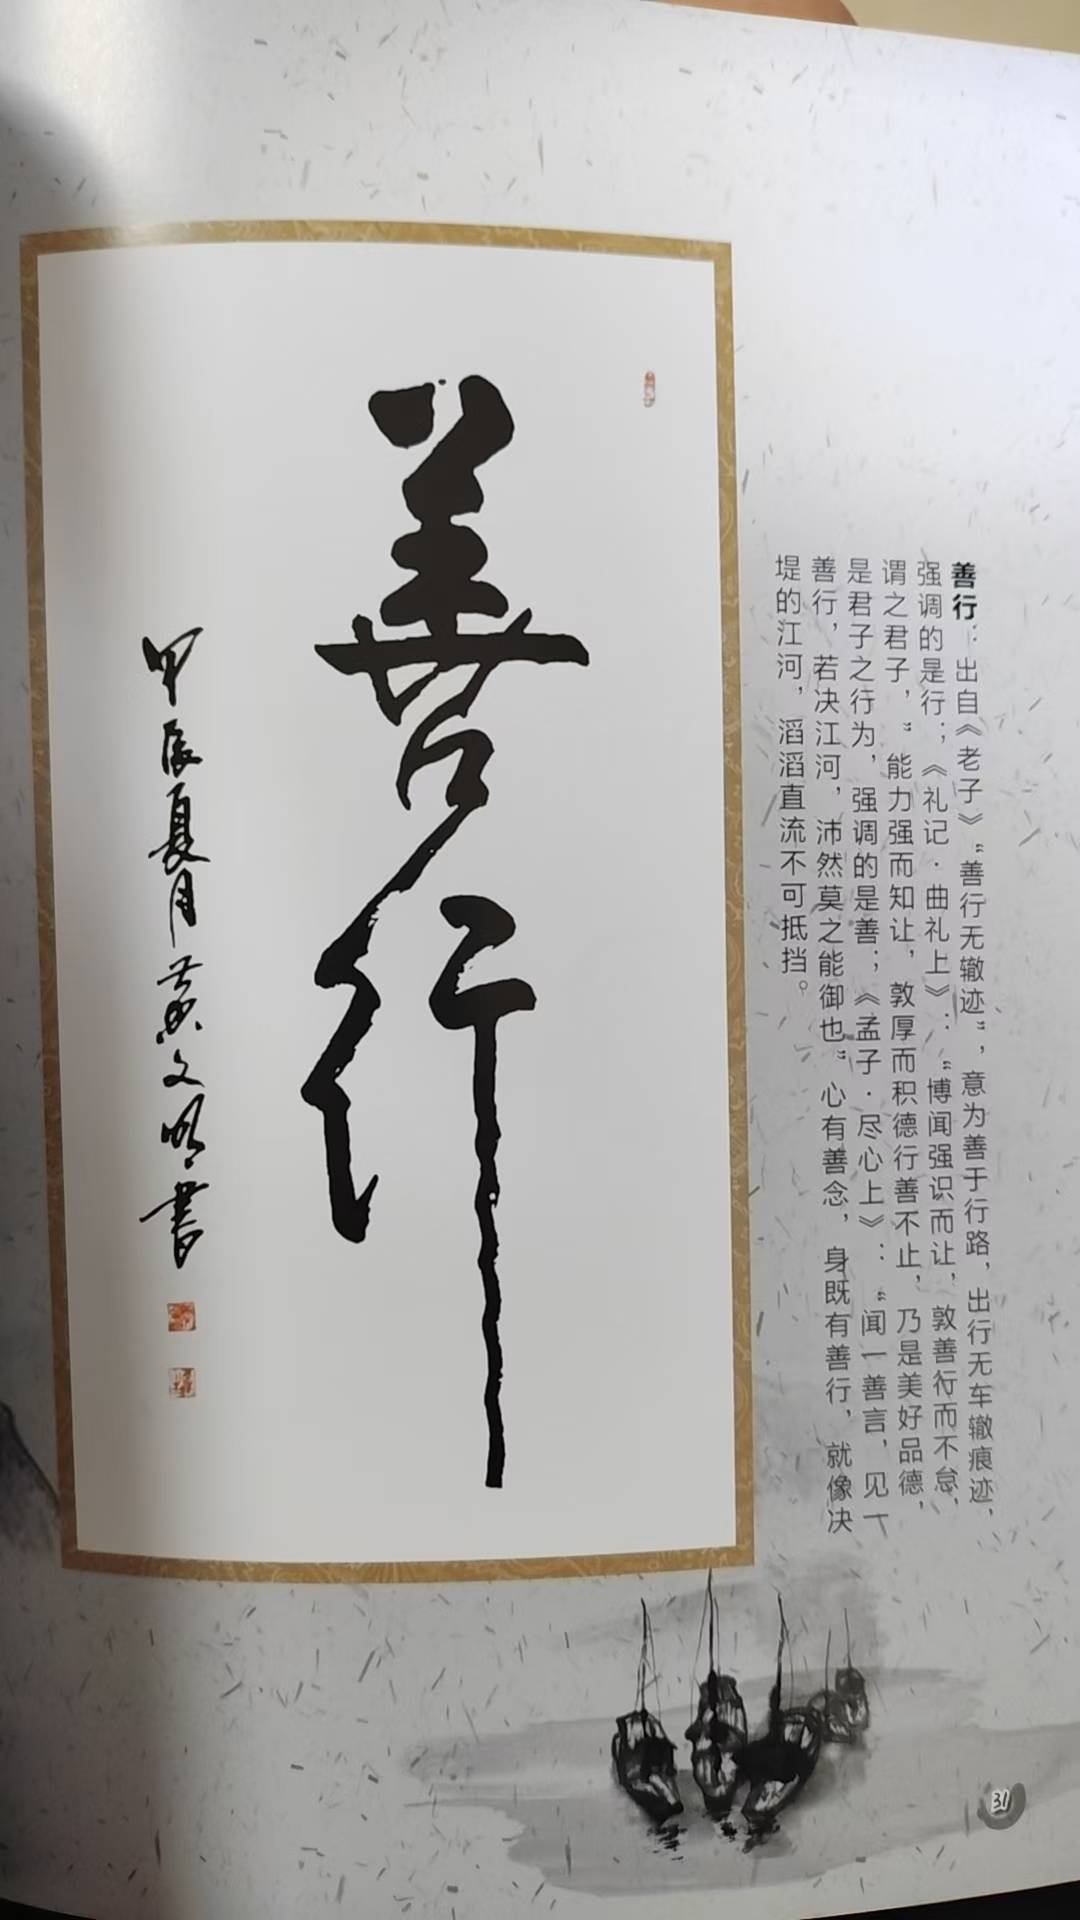 善行
甲辰夏月黄文明書
善行：出自《老子》“善行无辙迹”，意为善于行路，出行无车辙痕迹，
强调的是行；《礼记·曲礼上》：“博闻强识而让，敦善行而不怠，
谓之君子，”能力强而知让，敦厚而积德行善不止，乃是美好品德，
是君子之行为，强调的是善；《孟子·尽心上》：“闻一善言，见一
善行，若决江河，沛然莫之能御也”心有善念，身既有善行，就像决
堤的江河，滔滔直流不可抵挡。
31